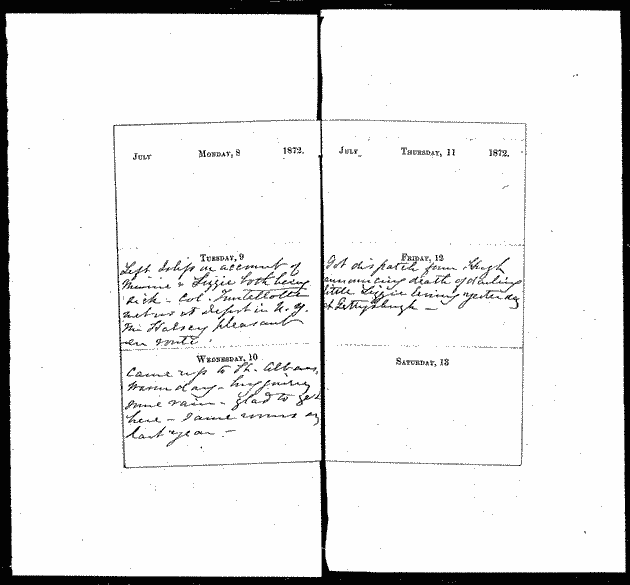 July Monday, 8 1872.
Tuesday, 9
Left Islip on account of
Minnie & Lizzie both being
sick - Col.
met us at depot in N. Y.
Mr Halsey pleasant
en route.
Wednesday, 10
Came up to St. Albans,
warm day -
some rain - glad to get
here - same rooms as
last year -
July Thursday, 11 1872.
Friday, 12
Got dispatch from Hugh
announcing death of darling
little Lizzie yesterday
at Gettysburgh -
Saturday, 13